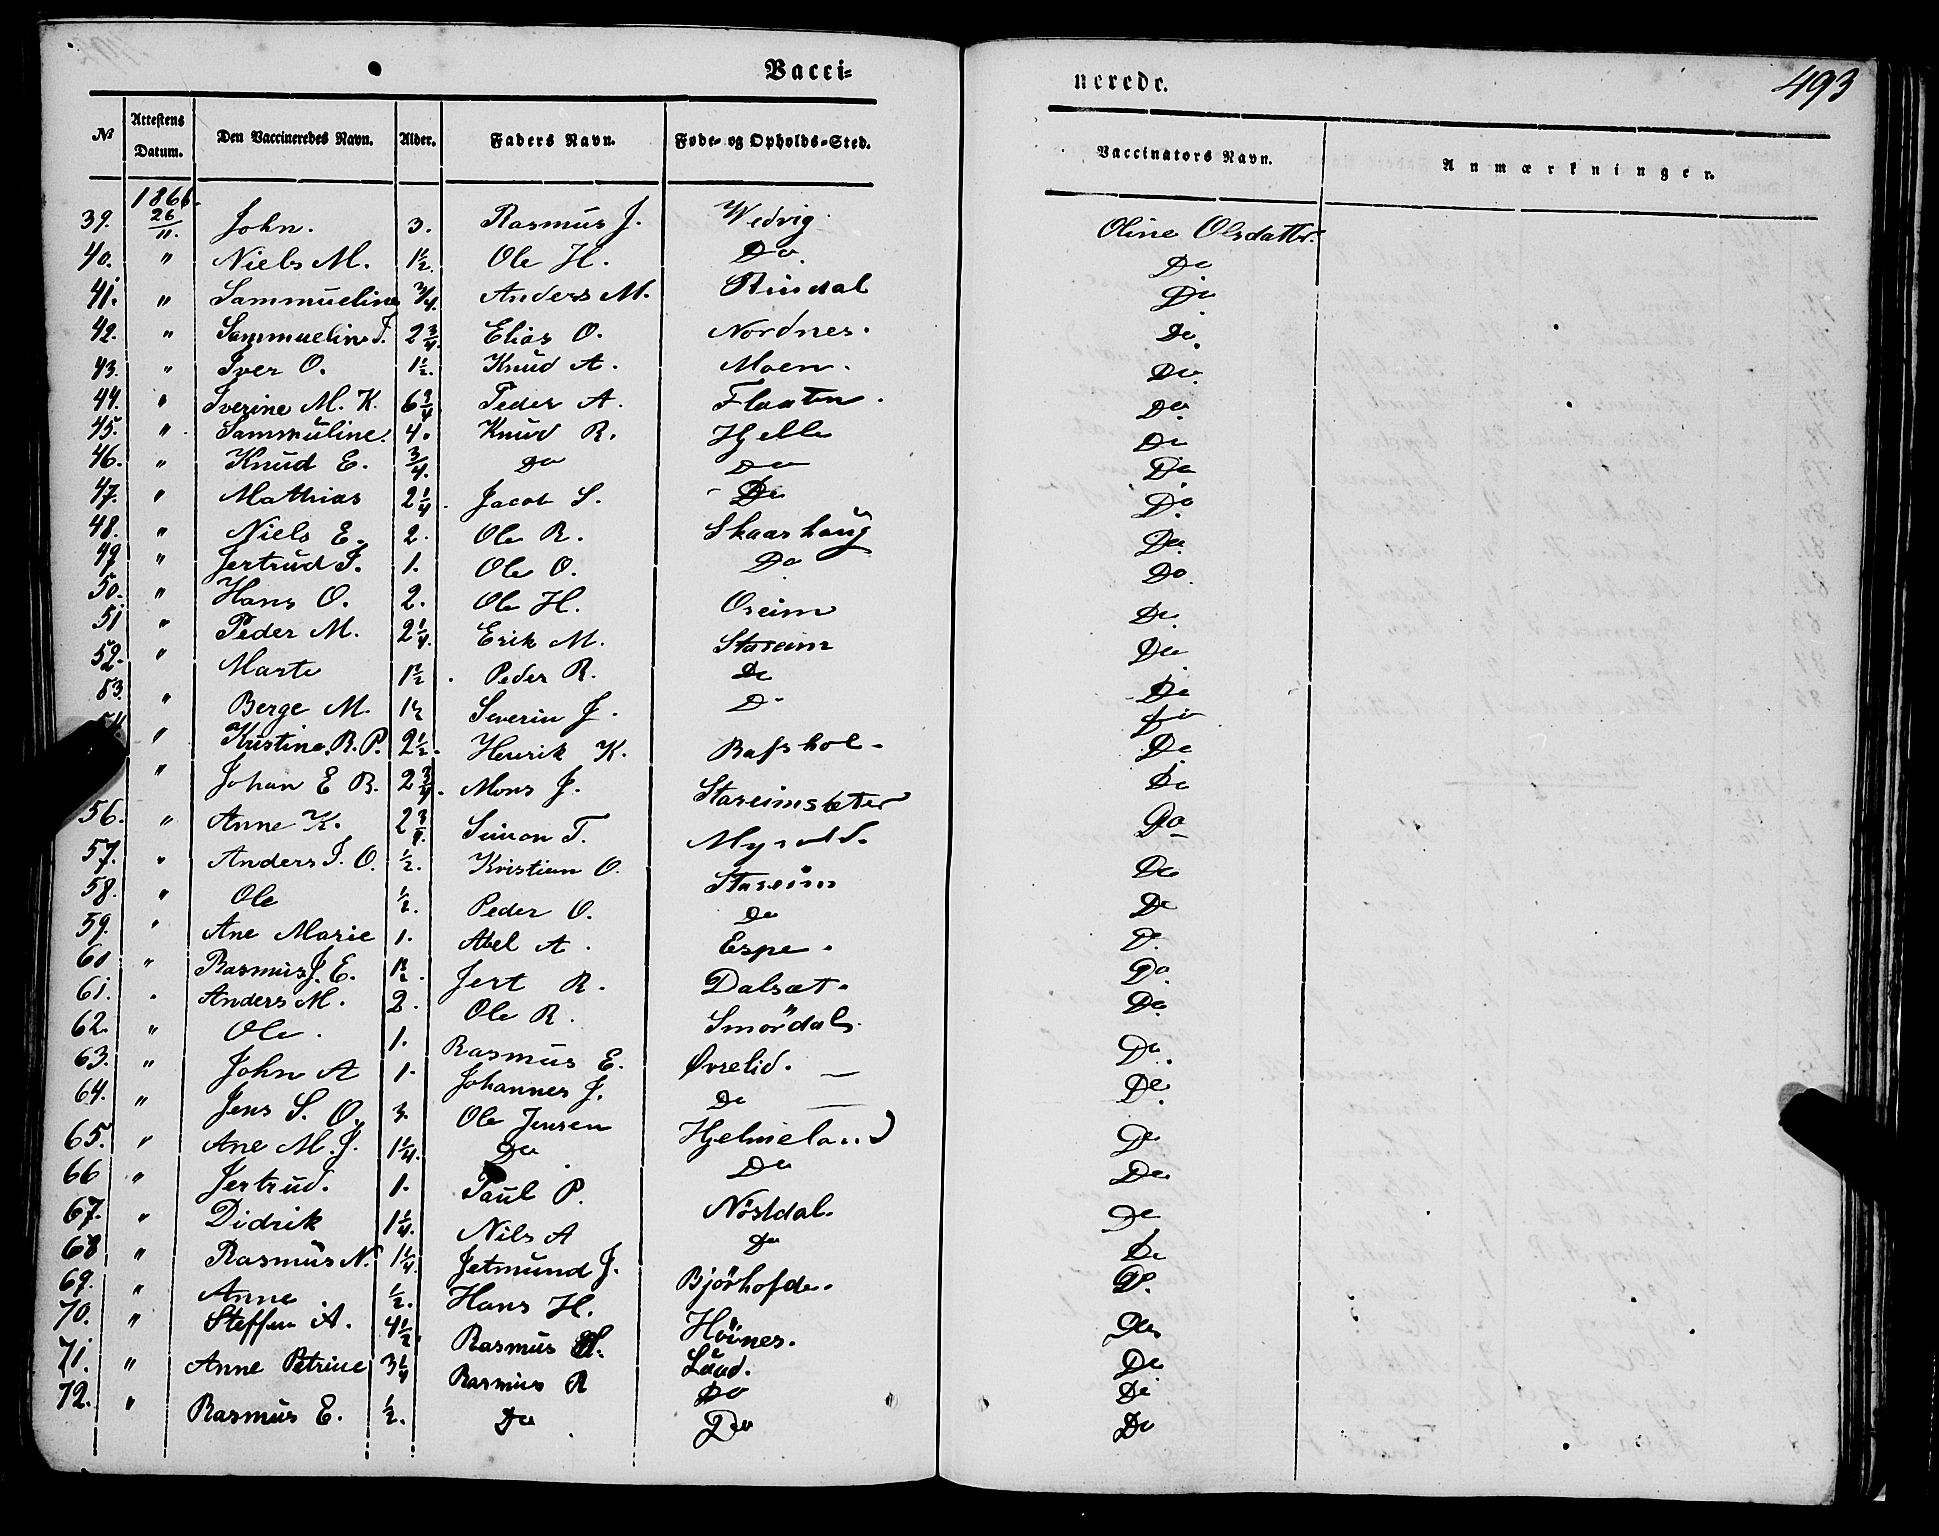 Vacci=
nerede.
493
№ Attestens Datum. Den Vaccineredes Navn. Alder. Faders Navn. Føde- og Opholds-Sted. Vaccinators Navn. Anmærkninger.
1866.
39. 26/11. John. 3. Rasmus J. Wedvig Oline Olsdatter.
40. " Niels M. 1½. Ole H. Do. Do
41. " Sammueline 3/4. Anders M. Rindal Do
42. " Sammueline J. 2 3/4. Elias O. Nordnes. Do.
43. " Iver O. 1½. Knud A. Moen. Do.
44. " Iverine M. K. 6 3/4 Peder A. Flaaten. Do.
45. " Sammuline. 4. Knud R. Hjelle Do
46. " Knud E. 3/4. Do Do Do
47. " Mathias 2 1/4. Jacob S. Do Do.
48. " Niels E. 2. Ole R. Skaarhaug Do.
49 " Jertrud J. 1. Ole O. Do Do.
50. " Hans O. 2. Ole H. Oseim Do.
51 " Peder M. 2 1/4. Erik M. Stareim Do
52. " Marte 1½. Peder R. Do Do
53. " Berge M. 1½ Severin J. Do Do
54 " Kristine. R. P. 2½. Henrik K. Do
" Johan E R. 2 3/4. Mons J. Stareimsæter Do
56. " Anne K. 2 3/4. Simon T. Do
57. " Anders J. O. ½. Kristian O. Stareim Do
58. " Ole ½. Peder O. Do Do
59. " Ane Marie 1. Abel A. Espe. D.
60 " Rasmus J. E. 1½. Jert R. Dalsæt. Do.
61. " Anders M. 2. Ole R. Smördal Do.
62. " Ole. 1. Rasmus E. Øvrelid. Do.
63. " John A 1. Johannes J. Do Do.
64. " Jens S. O. 3. Ole Jensen Hjelmeland Do
65. " Ane M. J. 1 1/4. Do Do Do
66 " Jertrud. 1. Paul P. Nöstdal. Do
67. " Didrik 1 1/4. Nils A Do Do
68 " Rasmus N. 1 1/4. Jetmund J. Björhofde. Do.
69. " Anne ½. Hans H. Höines. Do
70. " Steffen A. 4½. Rasmus Laad. Do
71. " Anne Petrine 3 1/4 Rasmus R Do Do
72. " Rasmus E. ½. Do Do Do